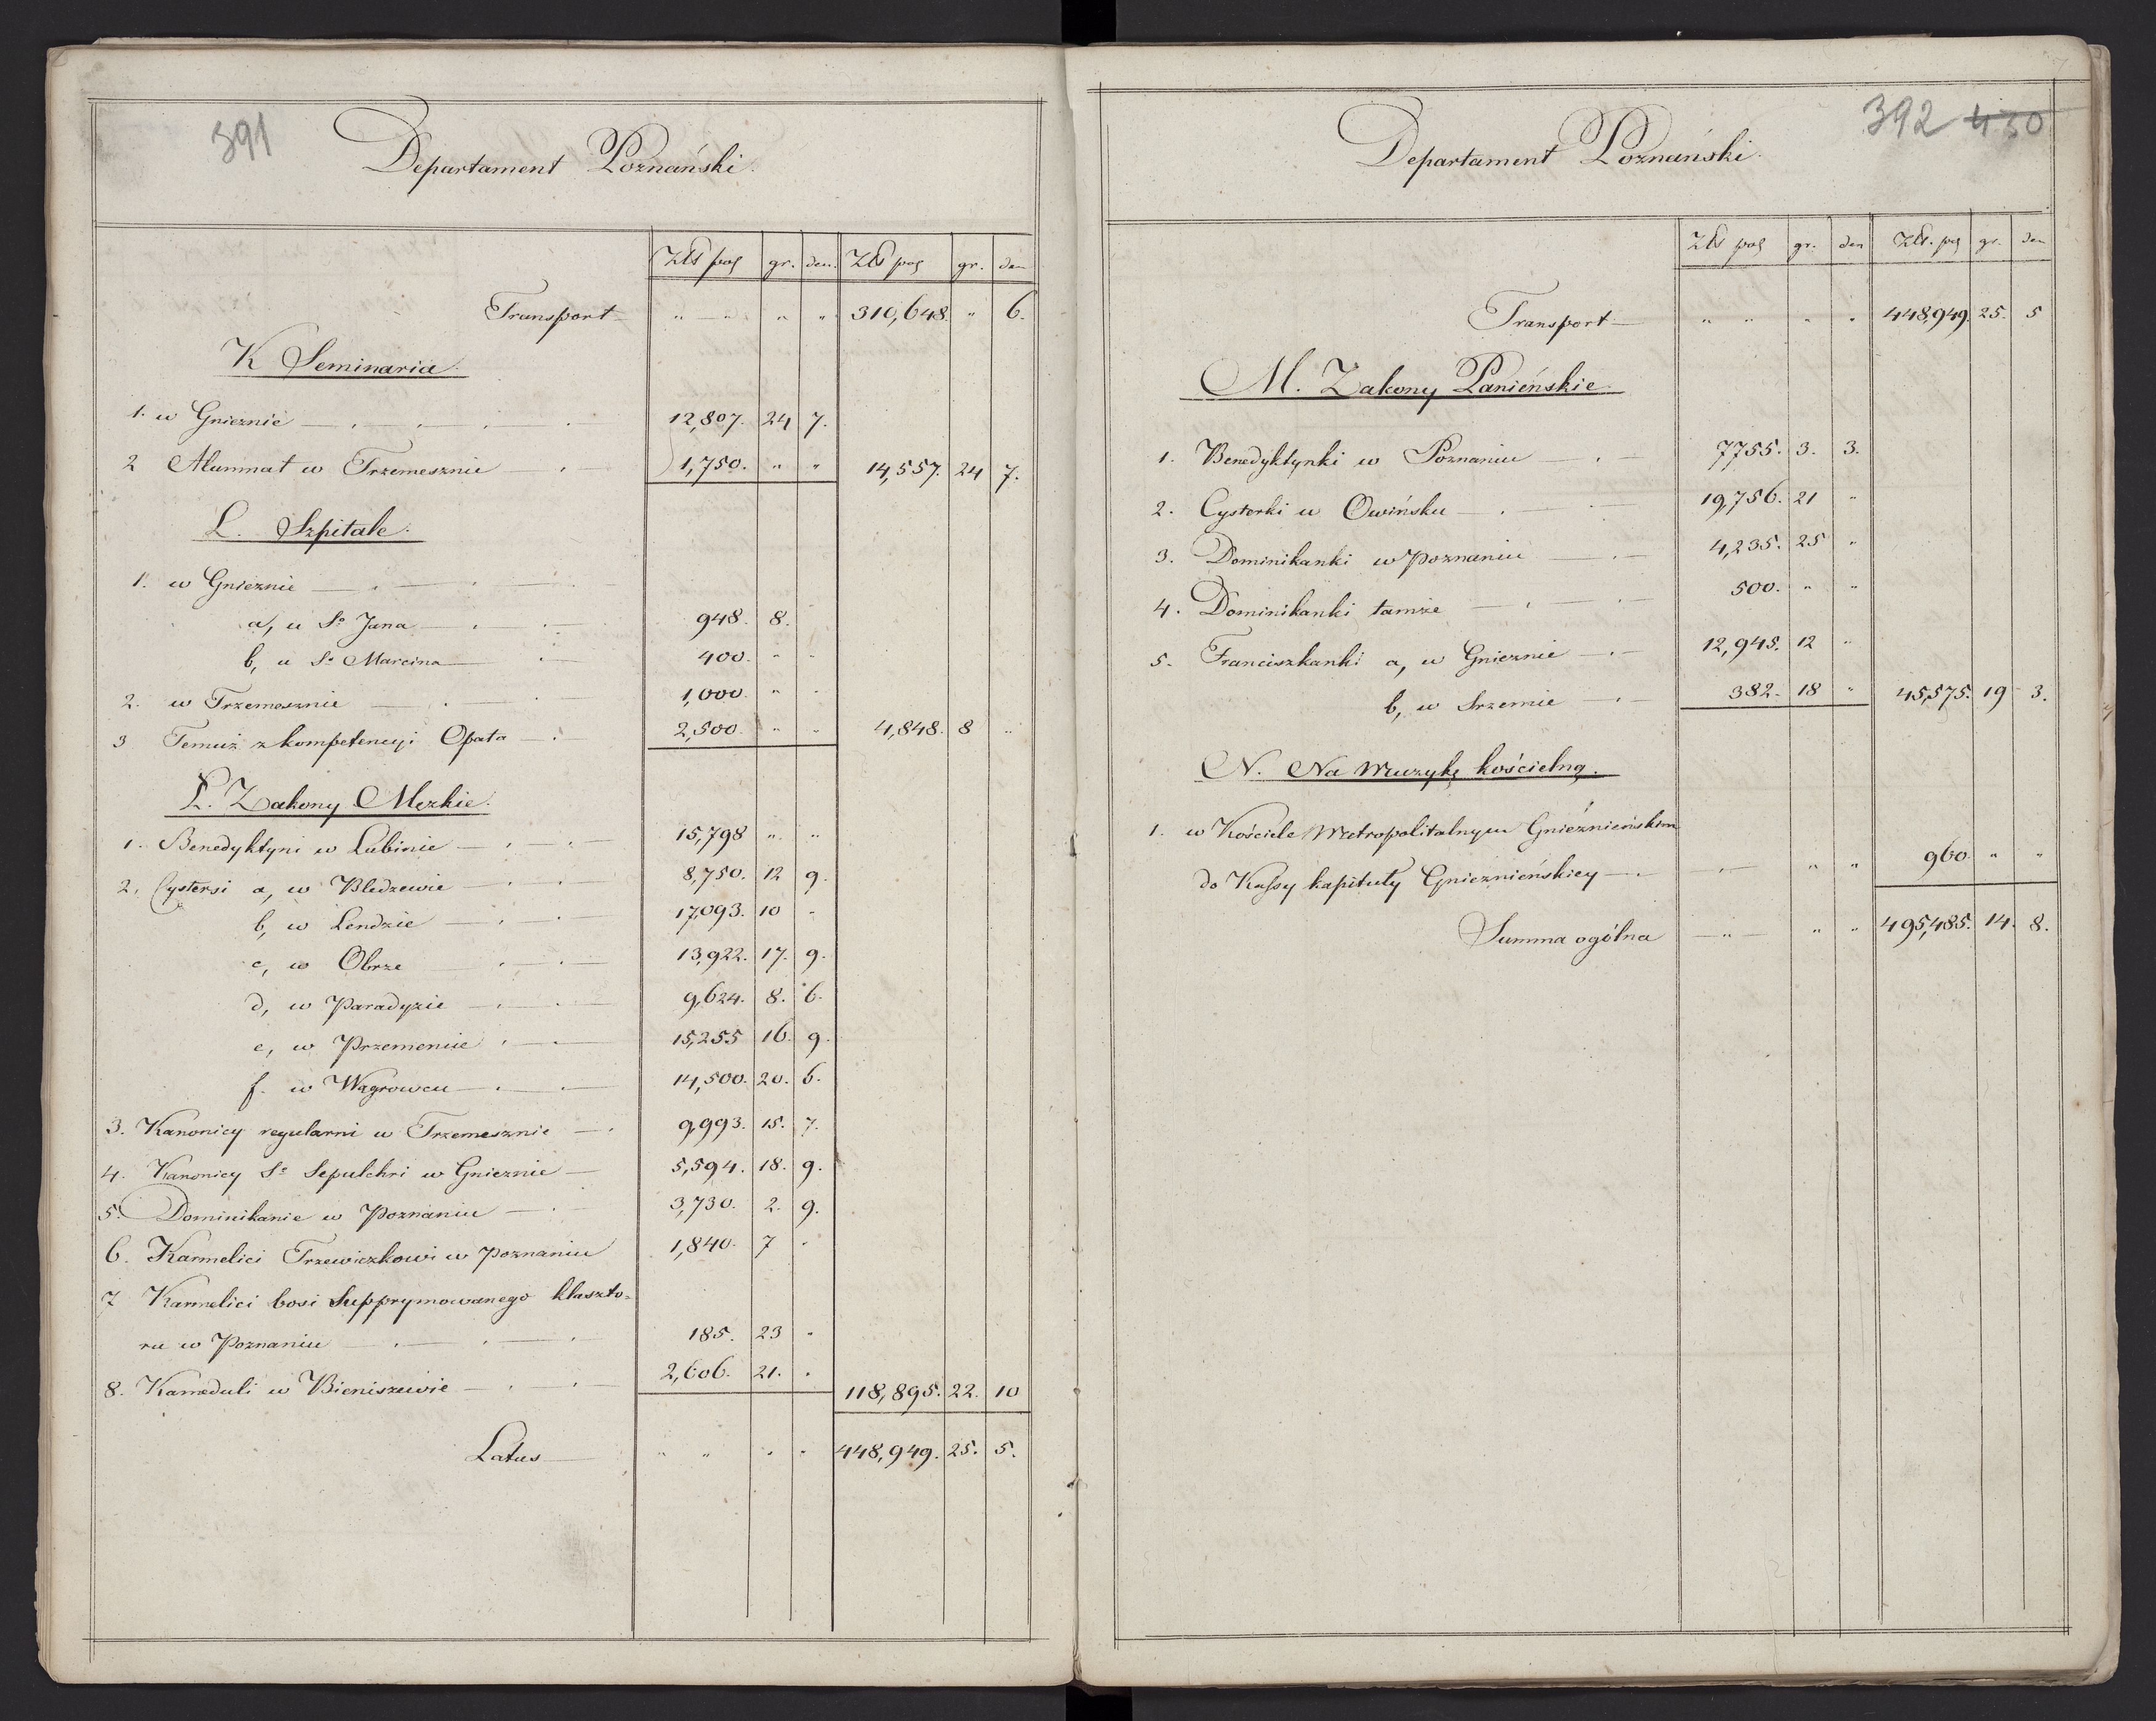 391
Departament Poznański.
Złt pol gr. den. Złt pol gr. den
Transport " " " " 310,648. " 6.
K Seminaria.
1. w Gnieznie 12,807. 24 7.
2 Alumnat w Trzemesznie 1,750. " " 14,557. 24 7.
L. Szpitale.
1. w Gnieznie
a, u So Jana 948. 8.
b, u So Marcina 400. " "
2. w Trzemesznie 1,000. " "
3 Temuż z kompetencyi Opata 2,500. " " 4,848. 8 "
Ł. Zakony Męzkie.
1. Benedyktyni w Lubinie 15,798 " "
2. Cystersi a, w Bledzewie 8,750. 12 9.
b, w Lendzie 17,093. 10 "
c, w Obrze 13,922. 17. 9.
d, w Paradyzie 9,624. 8. 6.
e, w Przemencie 15,255 16. 9.
f. w Wągrowcu 14,500. 20. 6.
3. Kanonicy regularni w Trzemesznie 9,993. 15. 7.
4. Kanonicy St Sepulchri w Gnieznie 5,594. 18. 9.
5. Dominikanie w Poznaniu 3,730. 2. 9.
6. Karmelici Trzewiczkowi w Poznaniu 1,840. 7 "
7 Karmelici bosi Supprymowanego klaszto=
ru w Poznaniu 185. 23 "
8. Kameduli w Bieniszewie 2,606. 21. " 118,895. 22. 10
Latus " " " " 448,949. 25. 5.
392 430
Departament Poznański.
Złt pol gr. den Złt. pol gr. den
Transport " " " " 448,949. 25. 5
M. Zakony Panieńskie.
1. Benedyktynki w Poznaniu 7755. 3. 3.
2. Cysterki w Owińsku 19,756. 21 "
3. Dominikanki w Poznaniu 4,235. 25 "
4. Dominikanki tamże 500. " "
5. Franciszkanki a, w Gnieznie 12,945. 12 "
b, w Srzemie 382. 18 " 45,575. 19 3.
N. Na Muzykę kościelną.
1. w Kościele Metropolitalnym Gnieźnieńskim
do Kassy kapituły Gnieznieńskiey " " 960. " "
Summa ogólna " " " 495,485. 14. 8.